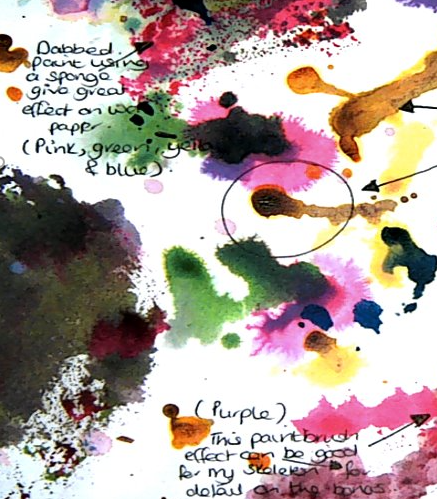 Dabbed
paint using
a sponge
give great
effect on wet
paper
(Pink, green, yellow
& blue).
(Purple)
This paintbrush
effect can be good
for my skeleton for
detail on the bones